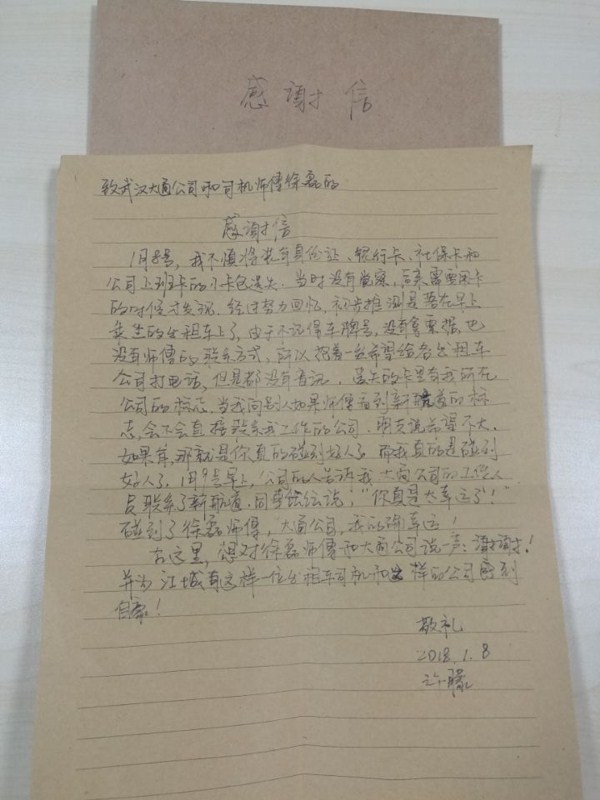 感谢信
致武汉大通公司和司机师傅徐磊的
感谢信
1月8号，我不慎将装有身份证、银行卡、社保卡和
公司上班卡的小卡包遗失。当时没有觉察，后来需要用卡
的时候才发现。经过努力回忆，初步推测是落在早上
乘坐的出租车上了，由于不记得车牌号，没有拿票据，也
没有师傅的联系方式，所以抱着一丝希望给各出租车
公司打电话，但是都没有音讯。丢失的卡里有我所在
公司的标志，当我问别人如果师傅看到新航道的标
志，会不会直接联系我工作的公司，朋友说希望不大。
如果有，那就是你真的碰到好人了。而我真的是碰到
好人了。1月9号早上，公司的人告诉我，大通公司的工作人
员联系了新航道。同事纷纷说：“你真是太幸运了！”
碰到了徐磊师傅，大通公司，我的确幸运！
在这里，想对徐磊师傅和大通公司说一声：谢谢！
并为江城有这样一位出租车司机和这样的公司感到
自豪！
敬礼
2018.1.8
许